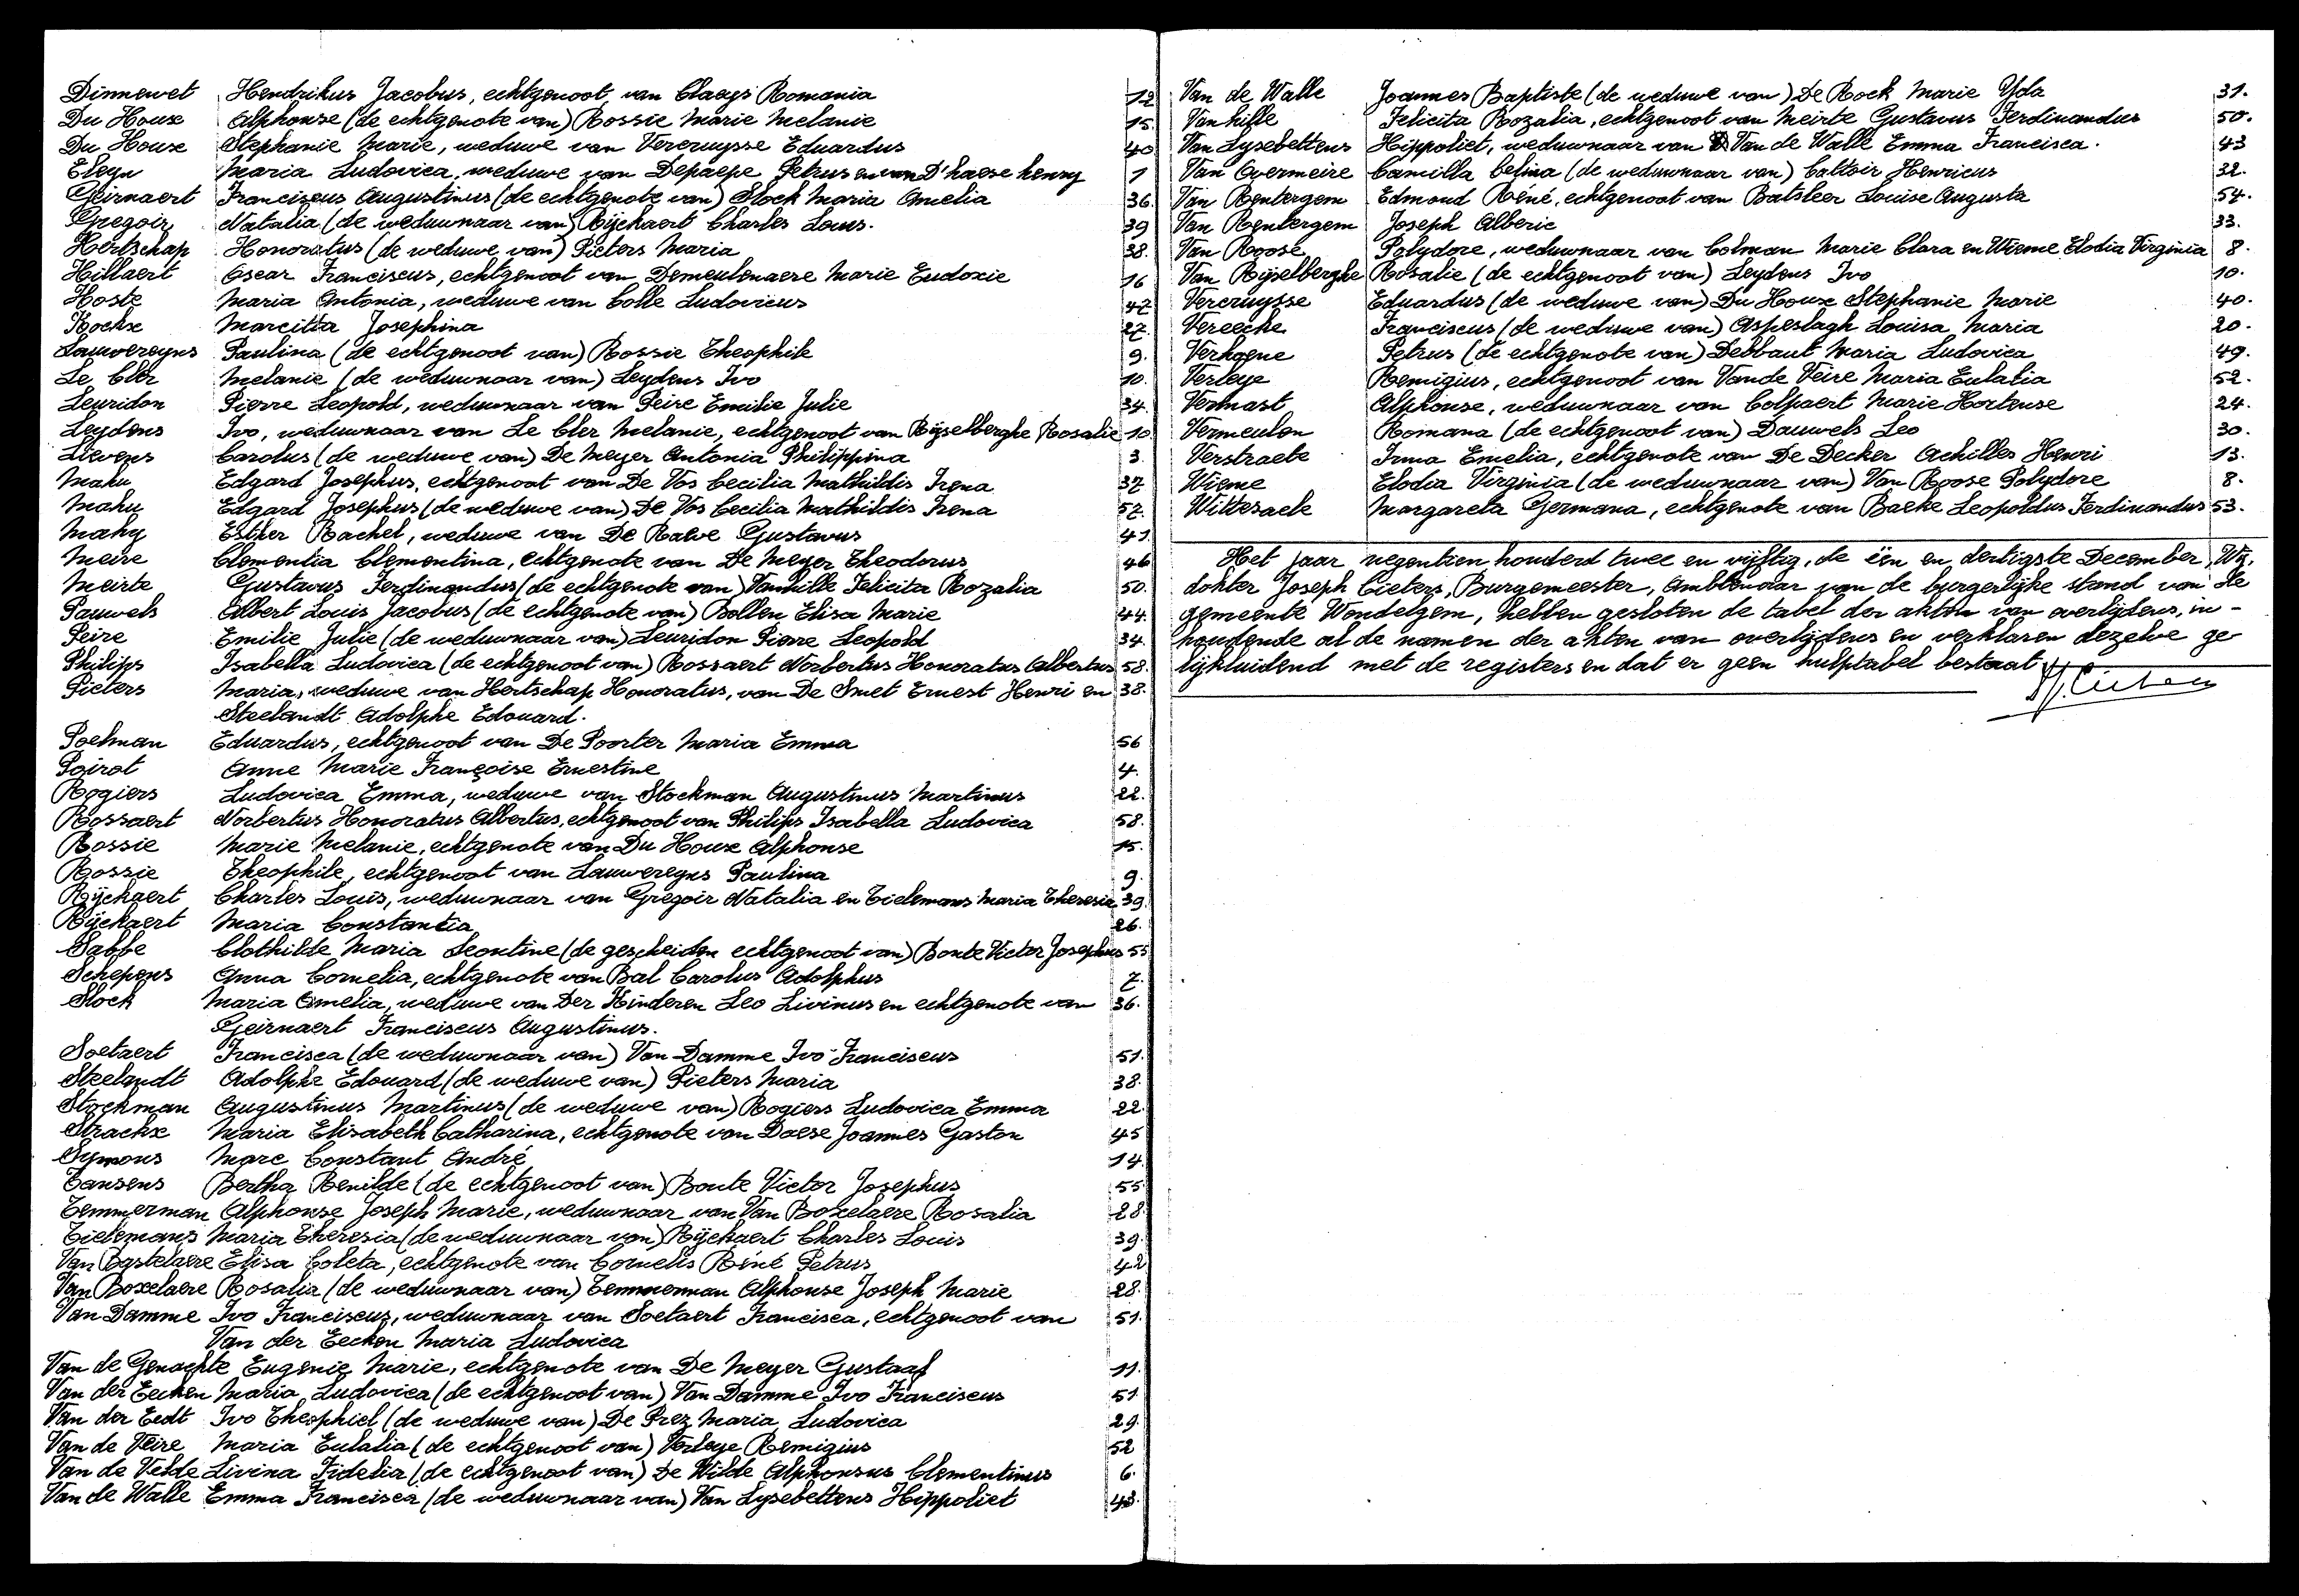 Dinnewet Hendrikus Jacobus, echtgenoot van Claeys Romania 12
Du Houx Alphonse (de echtgenote van) Rossie Marie Melanie 15.
Du Houx Stephanie Marie, weduwe van Vercruysse Eduardus 40
Eleyn Maria Ludovica, weduwe van Depaepe Petrus en van D'haese henry 1
Geirnaert Franciscus Augustinus (de echtgenote van) Slock Maria Amelia 36.
Gregoir Natalia (de weduwnaar van) Rÿckaert Charles Louis. 39
Hertschap Honoratus (de weduwe van) Pieters Maria 38.
Hillaert Oscar Franciscus, echtgenoot van Demeulenaere Marie Eudoxie 16
Hoste Maria Antonia, weduwe van Colle Ludovicus 47
Kockx Marcitta Josephina 27.
Lauwereyns Paulina (de echtgenoot van) Rossie Theophile 9.
Le Cler Melanie (de weduwnaar van) Leydens Ivo 10.
Leuridon Pierre Leopold, weduwnaar van Peire Emilie Julie 34.
Leydens Ivo, weduwnaar van Le Cler Melanie, echtgenoot van Rijselberghe Rosalie 10.
Lievens Carolus (de weduwe van) De Meyer Antonia Philippina 3.
Mahu Edgard Josephus, echtgenoot van De Vos Cecilia Mathildis Irena 37
Mahu Edgard Josephus (de weduwe van) De Vos Cecilia Mathildis Irena 57.
Mahy Esther Rachel, weduwe van De Raeve Gustavus 41.
Meire Clementia Clementina, echtgenote van De Meyer Theodorus 46
Meirte Gustavus Ferdinandus (de echtgenote van) Vanhille Felicita Rozalia 50.
Pauwels Albert Louis Jacobus (de echtgenote van) Bollen Elisa Marie 44.
Peire Emilie Julie (de weduwnaar van) Leuridon Pierre Leopold 34.
Philips Isabella Ludovica (de echtgenoot van) Rossaert Norbertus Honoratus Albertus 58.
Pieters Maria, weduwe van Hertschap Honoratus, van De Smet Ernest Henri en 38.
Steelandt Adolphe Edouard.
Poelman Eduardus, echtgenoot van De Poorter Maria Emma 56
Poirot Anne Marie Françoise Ernestine 4.
Rogiers Ludovica Emma, weduwe van Stockman Augustinus Martinus 22.
Rossaert Norbertus Honoratus Albertus, echtgenoot van Philips Isabella Ludovica 58.
Rossie Marie Melanie, echtgenote van Du Houx Alphonse 15.
Rossie Theophile, echtgenoot van Lauwereyns Paulina 9.
Rÿckaert Charles Louis, weduwnaar van Gregoir Natalia en Tielemans Maria Theresia 39.
Rÿckaert Maria Constantia 26.
Sabbe Clothilde Maria Leontine (de gescheiden echtgenoot van) Bonte Victor Josephus 55
Schepens Anna Cornelia, echtgenote van Bal Carolus Adolphus 7.
Slock Maria Amelia, weduwe van Der Kinderen Leo Livinus en echtgenote van 36.
Geirnaert Franciscus Augustinus.
Soetaert Francisca (de weduwnaar van) Van Damme Ivo Franciscus 51.
Steelandt Adolphe Edouard (de weduwe van) Pieters Maria 38.
Stockman Augustinus Martinus (de weduwe van) Rogiers Ludovica Emma 22.
Strackx Maria Elisabeth Catharina, echtgenote van Daese Joannes Gaston 45
Symons Marc Constant André 14.
Tansens Bertha Renilde (de echtgenoot van) Bonte Victor Josephus 55
Temmerman Alphonse Joseph Marie, weduwnaar van Van Boxelaere Rosalia 28.
Tielemans Maria Theresia (de weduwnaar van) Rÿckaert Charles Louis 39.
Van Bastelaere Elisa Coleta, echtgenote van Cornelis Réné Petrus 42
Van Boxelaere Rosalia (de weduwnaar van) Temmerman Alphonse Joseph Marie 28.
Van Damme Ivo Franciscus, weduwnaar van Soetaert Francisca, echtgenoot van 51.
Van der Eecken Maria Ludovica
Van de Genachte Eugenie Marie, echtgenote van De Meyer Gustaaf 11.
Van der Eecken Maria Ludovica (de echtgenoot van) Van Damme Ivo Franciscus 51
Van der Eedt Ivo Theophiel (de weduwe van) De Prez Maria Ludovica 29.
Van de Veire Maria Eulalia (de echtgenoot van) Verleye Remigius 52
Van de Velde Livina Fidelia (de echtgenoot van) De Wilde Alphonsus Clementinus 6.
Van de Walle Emma Francisca (de weduwnaar van) Van Lysebettens Hippoliet 43.
Van de Walle Joannes Baptiste (de weduwe van) De Rock Marie Yda 31.
Vanhille Felicita Rozalia, echtgenoot van Meirte Gustavus Ferdinandus 50.
Van Lysebettens Hippoliet, weduwnaar van Van de Walle Emma Francisca. 43
Van Overmeire Camilla Celina (de weduwnaar van) Caltoir Henricus 32.
Van Renbergem Edmond Réné, echtgenoot van Batsleer Louise Augusta 54.
Van Renbergem Joseph Alberic 33.
Van Roose Polydore, weduwnaar van Colman Marie Clara en Wieme Elodia Virginia 8.
Van Rijselberghe Rosalie (de echtgenoot van) Leydens Ivo 10.
Vercruysse Eduardus (de weduwe van) Du Houx Stephanie Marie 40.
Vereecke Franciscus (de weduwe van) Aspeslagh Louisa Maria 20.
Verhoene Petrus (de echtgenote van) Debbaut Maria Ludovica 49.
Verleye Remigius, echtgenoot van Vande Veire Maria Eulalia 52.
Vermast Alphonse, weduwnaar van Colpaert Marie Hortense 24.
Vermeulen Romana (de echtgenoot van) Dauwels Leo 30.
Verstraete Irma Emelia, echtgenote van De Decker Achilles Henri 13.
Wieme Elodia Virginia (de weduwnaar van) Van Roose Polydore 8.
Wittesaele Margareta Germana, echtgenote van Baeke Leopoldus Ferdinandus 53.
Het jaar negentien honderd twee en vijftig, de één en dertigste December, Wij,
dokter Joseph Cieters, Burgemeester, Ambtenaar van de burgerlijke stand van de
gemeente Wondelgem, hebben gesloten de tabel der akten van overlijdens, in-
houdende al de namen der akten van overlijdens en verklaren dezelve ge-
lijkluidend met de registers en dat er geen hulptabel bestaat